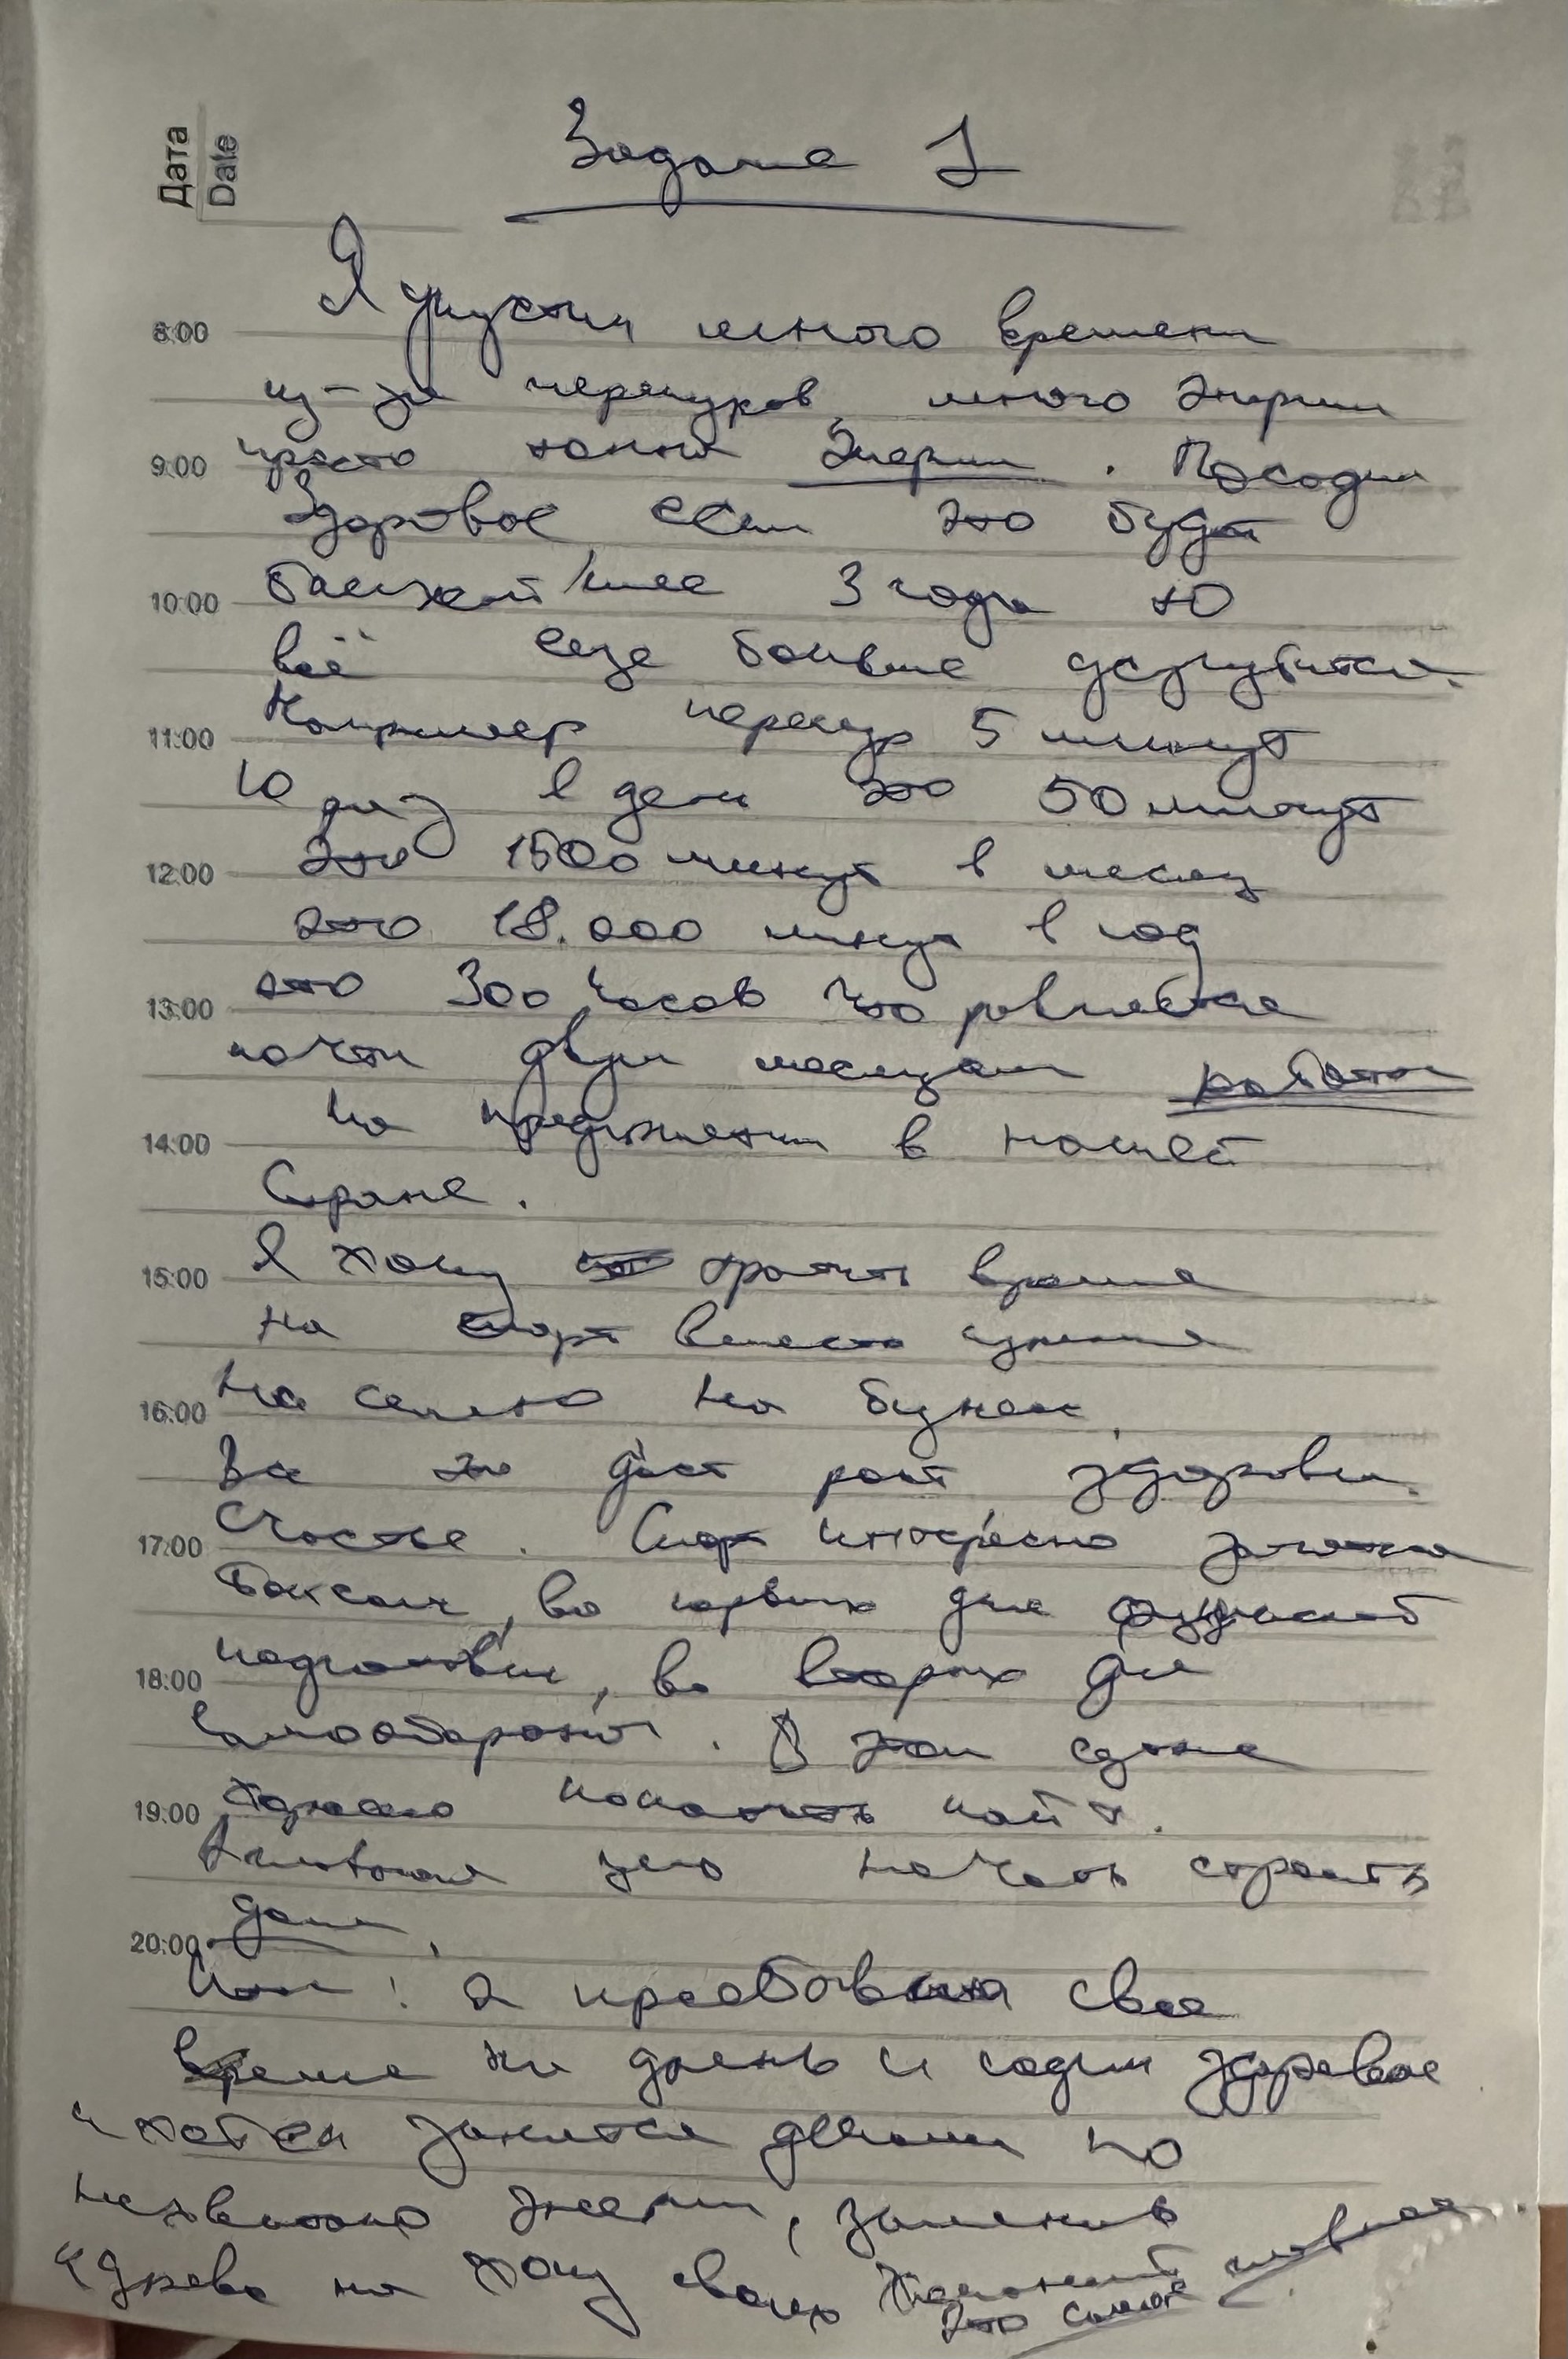 Дата
Date
Задание 1
Я упустил много времени
8:00
из-за перекуров, много энергии
9:00
просто тонна Энергии. Посадил
Здоровье если это будет
10:00
ближайшие 3 года то
всё еще больше усугубится.
Например перекур 5 минут
11:00
10 раз в день это 50 минут
12:00
это 1500 минут в месяц
это 18.000 минут в год
13:00
это 300 часов что равняется
почти двум месяцам работы
на предприятии в нашей
14:00
Стране.
Я хочу тратить время
15:00
на спорт вместо
16:00
на семью на бизнес,
Все это даст рост здоровья.
17:00
Счастье. Спорт интересно заняться
Боксом, во первых для физической
18:00
подготовки, во вторых для
самообороны. В этом
19:00
начать строить
дом,
20:00
Итог! Я свое
время на и садил здоровье
и заняться делами но
энергии, заменив
на хочу своих
это самое главное